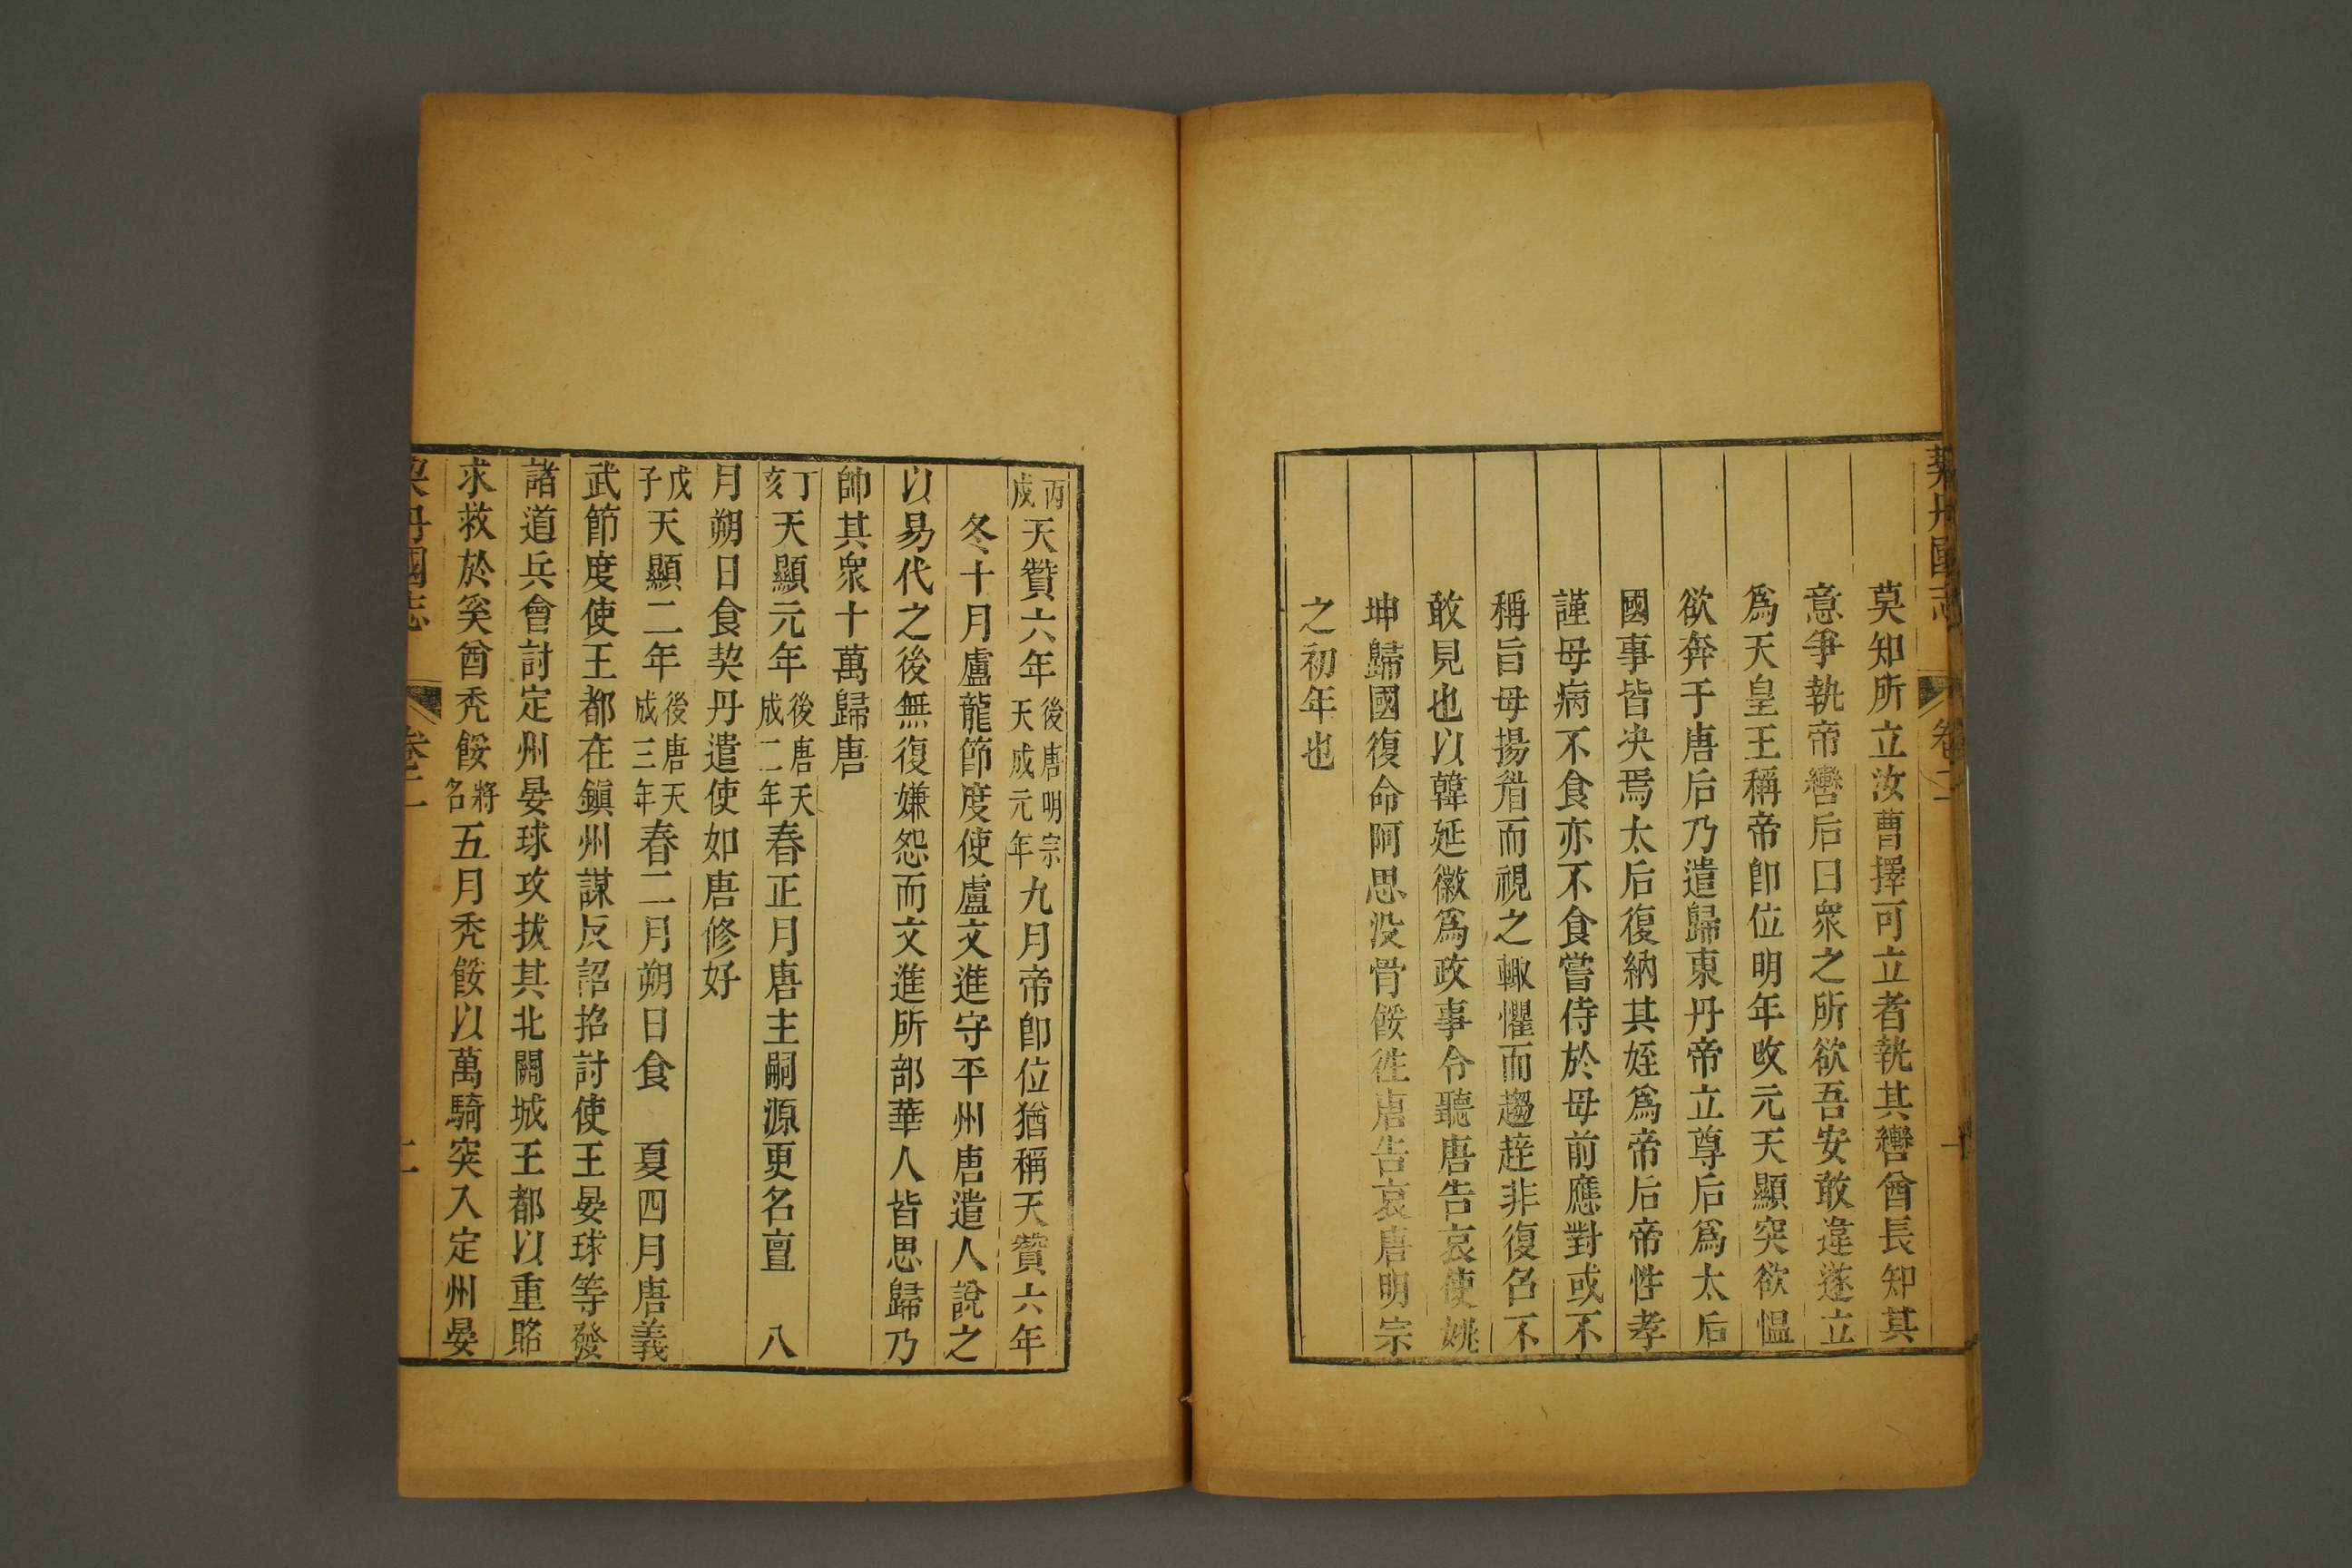 契丹國志 卷二 一
莫知所立汝曹擇可立者執其轡酋長知其
意爭執帝轡后曰衆之所欲吾安敢違遂立
爲天皇王稱帝卽位明年改元天顯突欲慍
欲奔于唐后乃遣歸東丹帝立尊后爲太后
國事皆決焉太后復納其姪爲帝后帝性孝
謹母病不食亦不食嘗侍於母前應對或不
稱旨母揚眉而視之輒懼而趨避非復召不
敢見也以韓延徽爲政事令聽唐告哀使姚
坤歸國復命阿思没骨餒徃唐告哀唐明宗
之初年也
丙戌天贊六年後唐明宗天成元年九月帝卽位猶稱天贊六年
冬十月盧龍節度使盧文進守平州唐遣人說之
以易代之後無復嫌怨而文進所部華人皆思歸乃
帥其衆十萬歸唐
丁亥天顯元年後唐天成二年春正月唐主嗣源更名亶 八
月朔日食契丹遣使如唐修好
戊子天顯二年後唐天成三年春二月朔日食 夏四月唐義
武節度使王都在鎭州謀反詔招討使王晏球等發
諸道兵會討定州晏球攻拔其北關城王都以重賂
求救於奚酋秃餒將名五月秃餒以萬騎突入定州晏
契丹國志 卷二 二